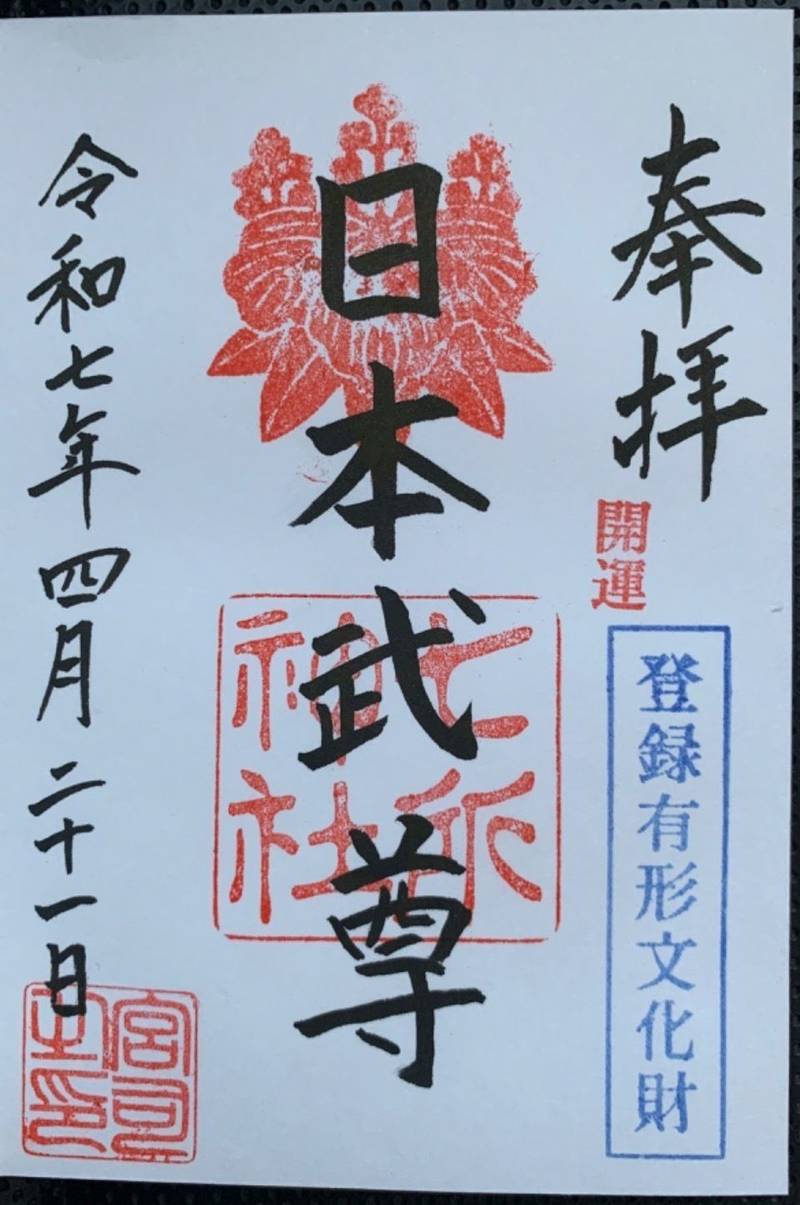 奉拝
開運
登録有形文化財
日本武尊
七所神社
令和七年四月二十一日
宮司之印